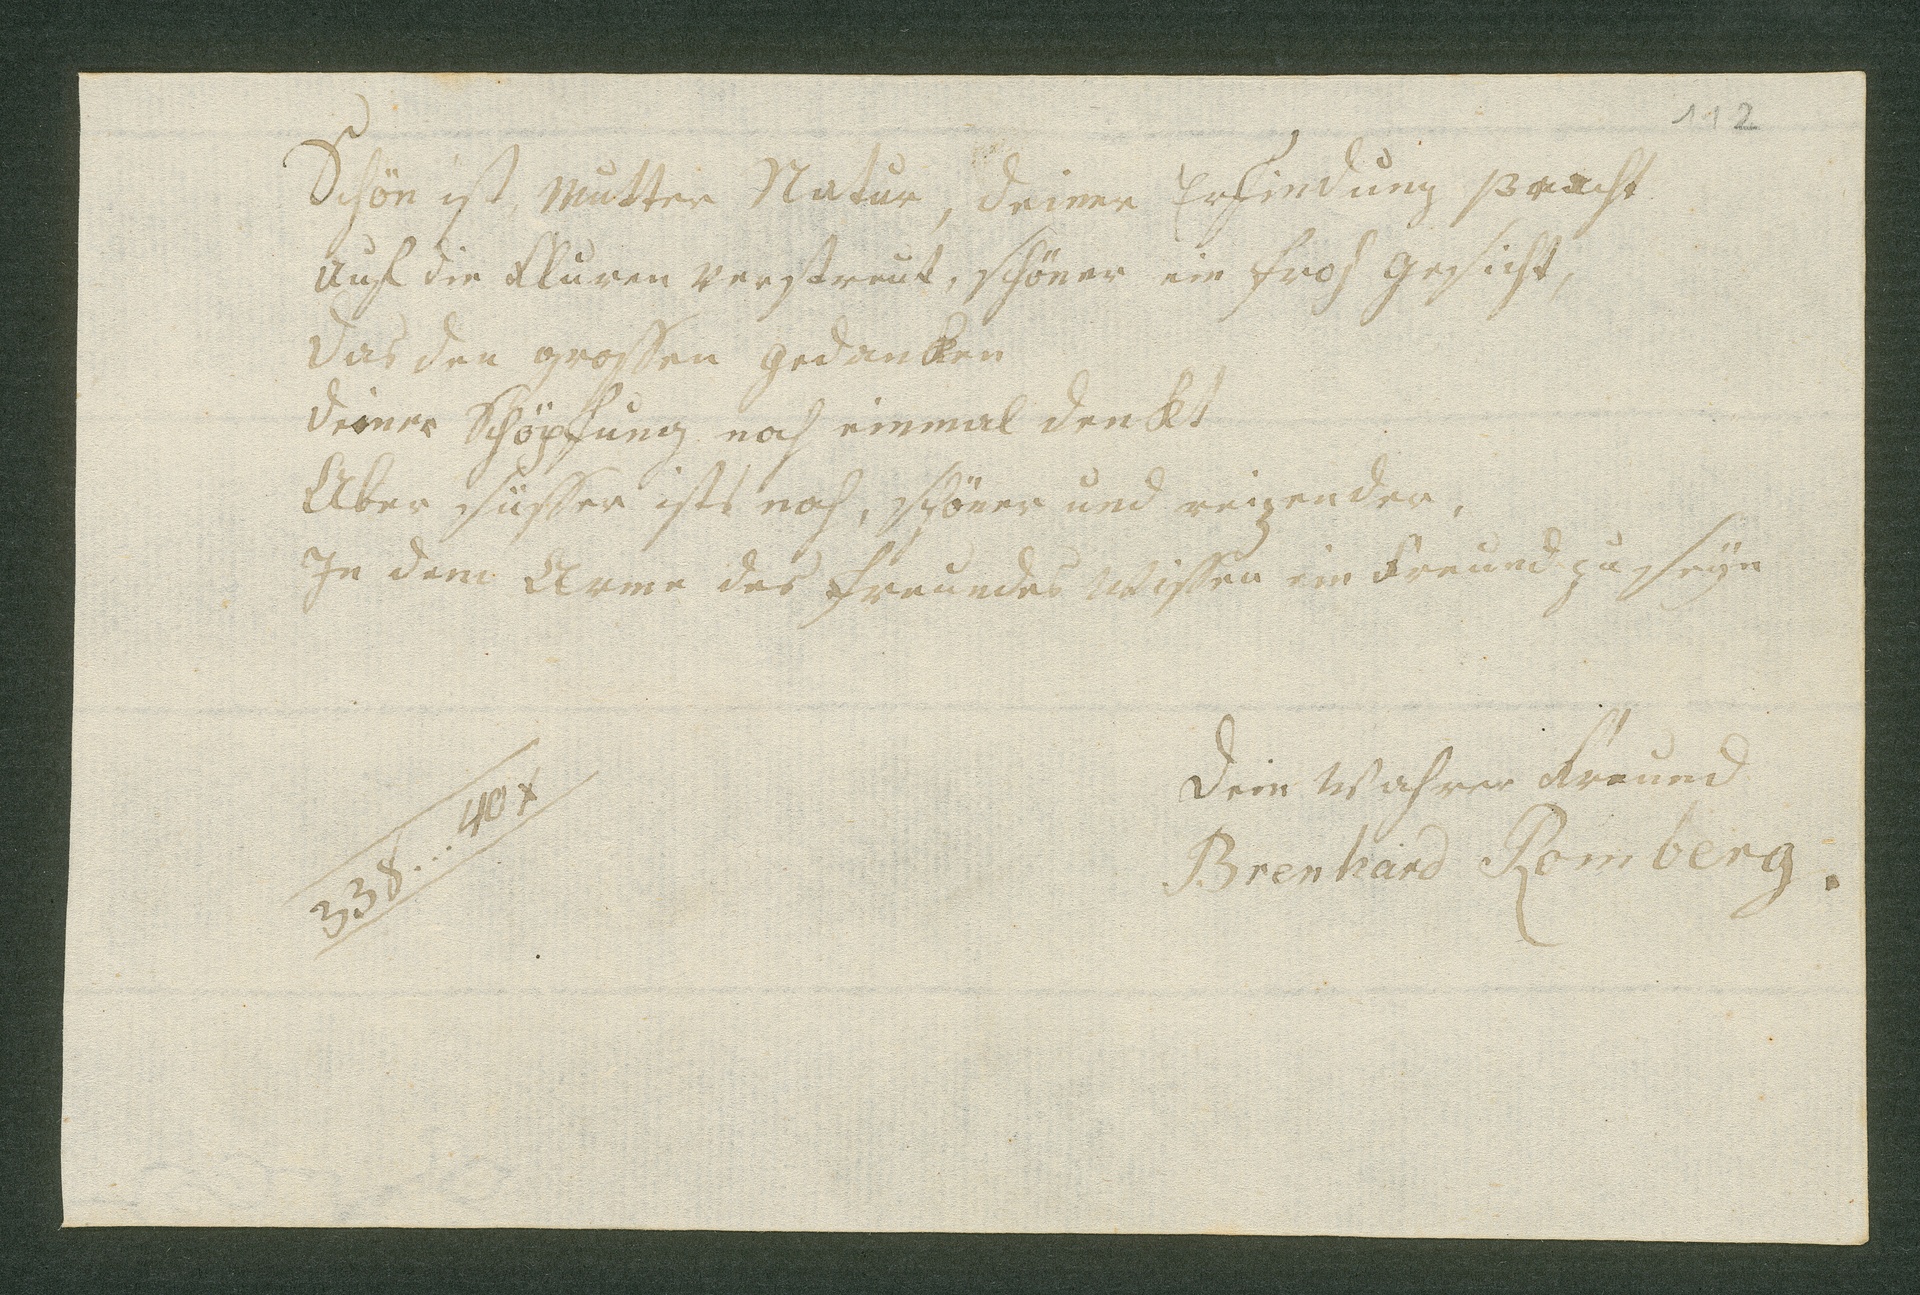 112
Schön ist, Mutter Natur, deiner Erfindung Pracht
auf die Fluren verstreut, schöner ein froh gesicht,
das den grossen gedanken
deiner Schöpfung noch einmal denkt
Aber süsser ists noch, schöner und reizender,
In dem Arme des Freundes Wissen ein Freund zu seÿn
Dein Wahrer Freund
Brenhard Romberg.
338... 40 x